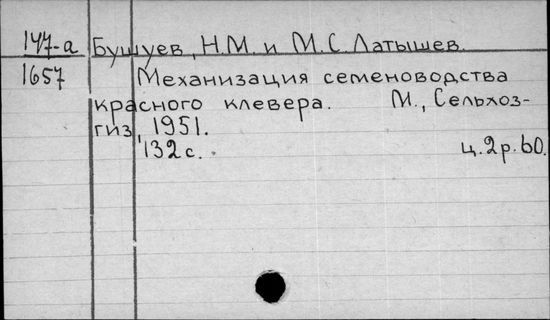 147-а Бушуев, Н.М. и М.С. Латышев.
1657 Механизация семеноводства
красного клевера. М., Сельхоз-
гиз, 1951.
132 с. ц. 2 р. 60.